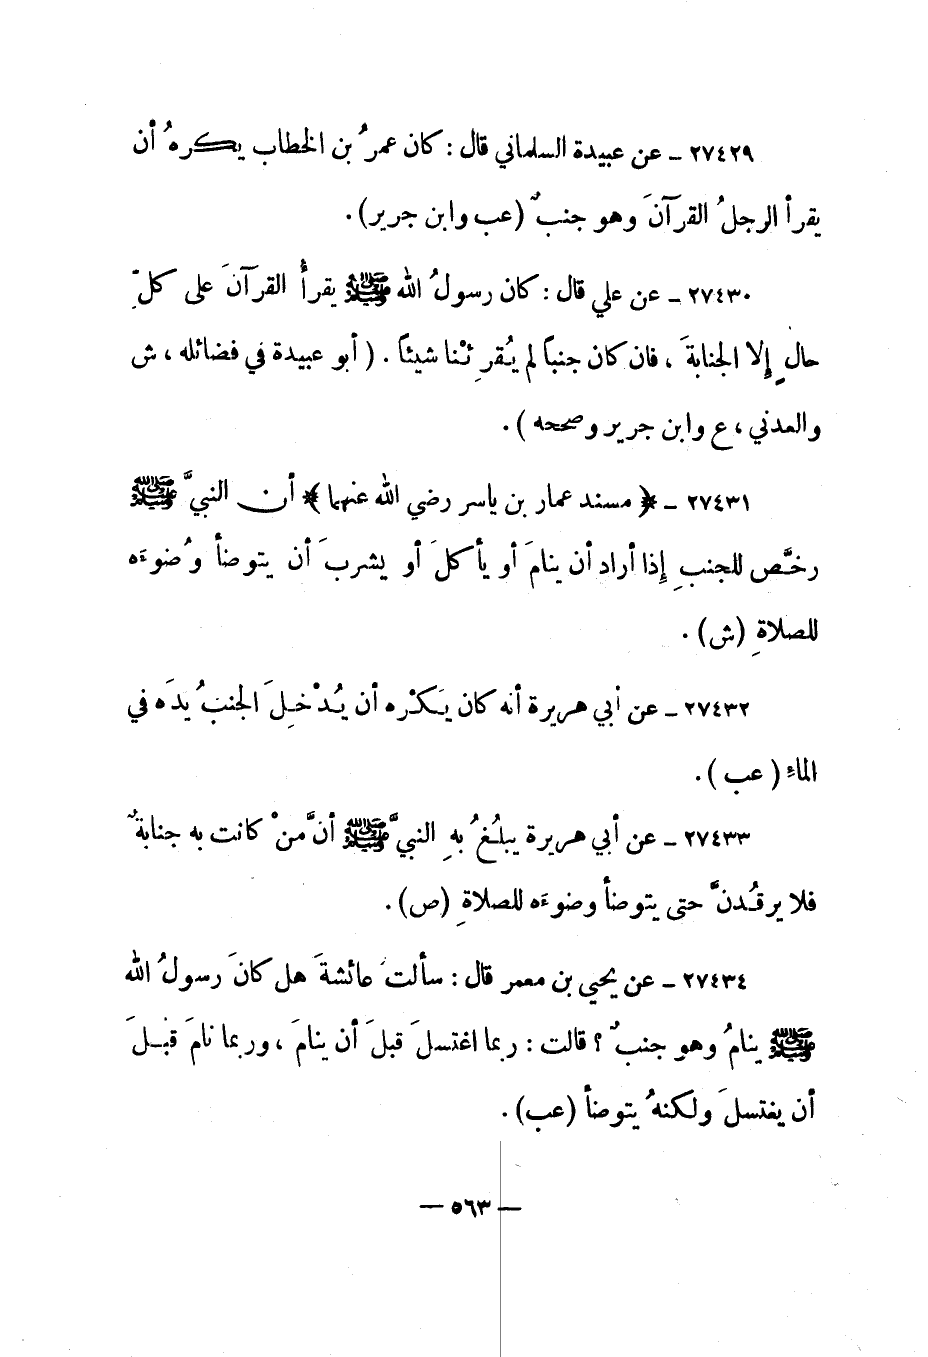 ٢٧٤٢٩ ـ عن عبيدة السلماني قال : كان عمرُ بن الخطاب يكرهُ أن
يقرأ الرجلُ القرآنَ وهو جنبٌ (عب وابن جرير) .
٢٧٤٣٠ ـ عن علي قال : كان رسولُ الله ﷺ يقرأُ القرآنَ على كلِّ
حالٍ إلا الجنابةَ ، فان كان جنباً لم يُقرِئْنا شيئاً . ( أبو عبيدة في فضائله ، ش
والعدني ، ع وابن جرير وصححه ) .
٢٧٤٣١ ـ ﴿ مسند عمار بن ياسر رضي الله عنهما ﴾ أن النبيَّ ﷺ
رخَّص للجنبِ إذا أراد أن ينامَ أو يأكلَ أو يشربَ أن يتوضأ وُضوءَه
للصلاةِ (ش) .
٢٧٤٣٢ ـ عن أبي هريرة أنه كان يَكْره أن يُدْخِلَ الجنبُ يدَه في
الماءِ ( عب ) .
٢٧٤٣٣ ـ عن أبي هريرة يبلُغُ بهِ النبيَّ ﷺ أنَّ منْ كانت به جنابةٌ
فلا يرقُدنَّ حتى يتوضأ وضوءَه للصلاةِ (ص) .
٢٧٤٣٤ ـ عن يحيى بن معمر قال : سألتُ عائشةَ هل كانَ رسولُ الله
ﷺ ينامُ وهو جنبٌ ؟ قالت : ربما اغتسلَ قبلَ أن ينامَ ، وربما نامَ قبلَ
أن يغتسلَ ولكنهُ يتوضأ (عب) .
— ٥٦٣ —